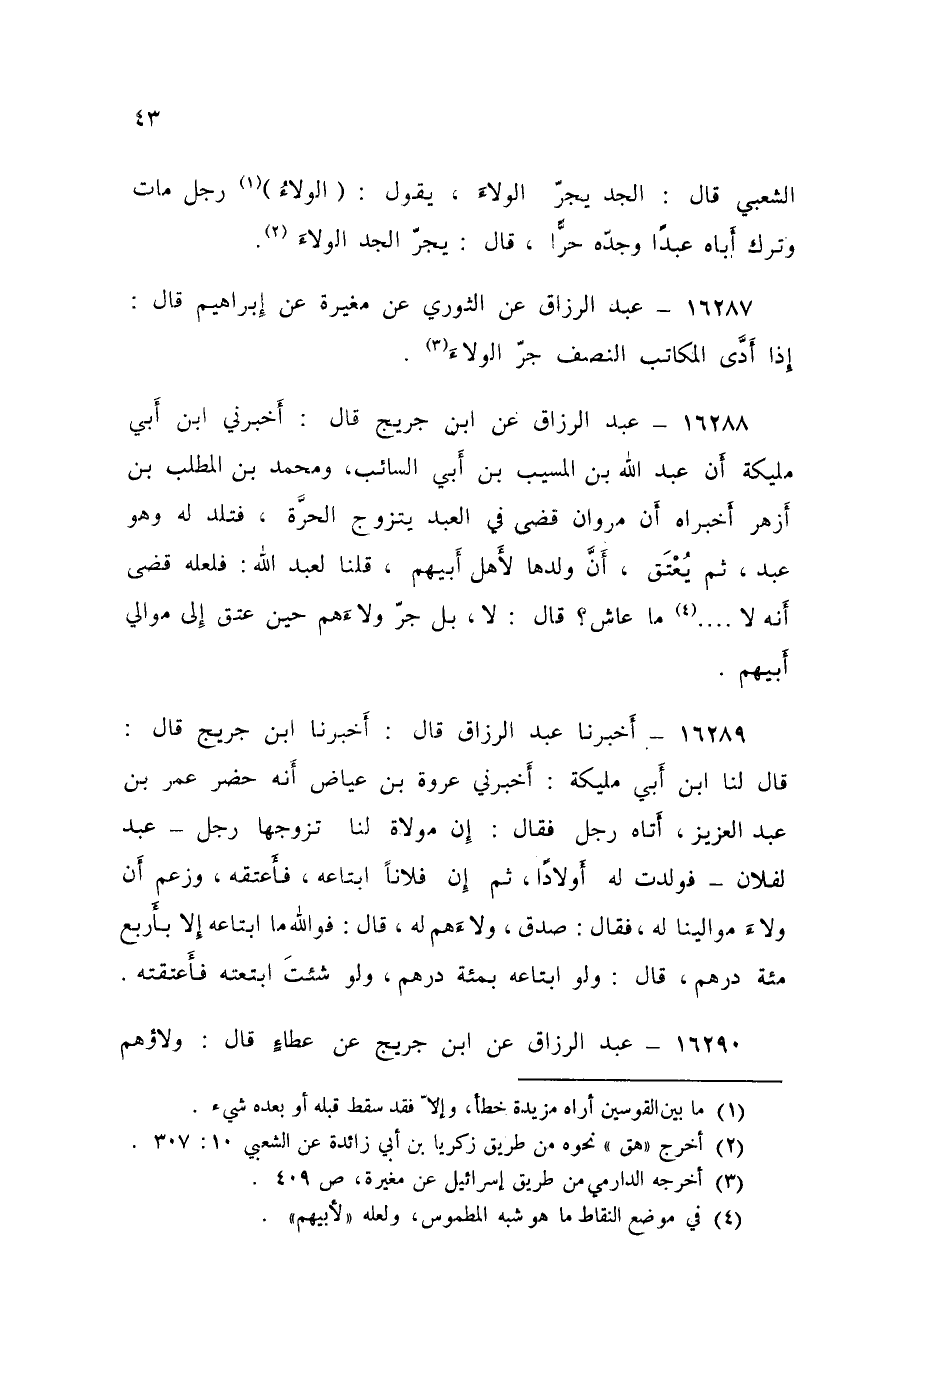 ٤٣
الشعبي قال : الجد يجرّ الولاءَ ، يقول : ( الولاءُ )(١) رجل مات
وترك أَباه عبدًا وجدّه حرًّا ، قال : يجرّ الجد الولاءَ (٢).
١٦٢٨٧ – عبد الرزاق عن الثوري عن مغيرة عن إبراهيم قال :
إذا أَدَّى المكاتب النصف جرّ الولاءَ(٣) .
١٦٢٨٨ – عبد الرزاق عن ابن جريج قال : أَخبرني ابن أَبي
مليكة أَن عبد الله بن المسيب بن أَبي السائب، ومحمد بن المطلب بن
أَزهر أَخبراه أَن مروان قضى في العبد يتزوج الحرَّة ، فتلد له وهو
عبد ، ثم يُعْتَق ، أَنَّ ولدها لأَهل أَبيهم ، قلنا لعبد الله : فلعله قضى
أَنه لا ....(٤) ما عاش؟ قال : لا ، بل جرّ ولاءَهم حين عتق إلى موالي
أَبيهم .
١٦٢٨٩ – أَخبرنا عبد الرزاق قال : أَخبرنا ابن جريج قال :
قال لنا ابن أَبي مليكة : أَخبرني عروة بن عياض أَنه حضر عمر بن
عبد العزيز ، أَتاه رجل فقال : إن مولاة لنا تزوجها رجل – عبد
لفلان – فولدت له أَولادًا ، ثم إن فلاناً ابتاعه ، فأَعتقه ، وزعم أَن
ولاءَ موالينا له ، فقال : صدق ، ولاءَهم له ، قال : فوالله ما ابتاعه إلا بأَربع
مئة درهم ، قال : ولو ابتاعه بمئة درهم ، ولو شئتَ ابتعته فأَعتقته .
١٦٢٩٠ – عبد الرزاق عن ابن جريج عن عطاءٍ قال : ولاؤهم
(١) ما بين القوسين أراه مزيدة خطأ، وإلاّ فقد سقط قبله أو بعده شيء .
(٢) أخرج «هق » نحوه من طريق زكريا بن أبي زائدة عن الشعبي ١٠: ٣٠٧ .
(٣) أخرجه الدارمي من طريق إسرائيل عن مغيرة، ص ٤٠٩ .
(٤) في موضع النقاط ما هو شبه المطموس، ولعله «لأبيهم» .